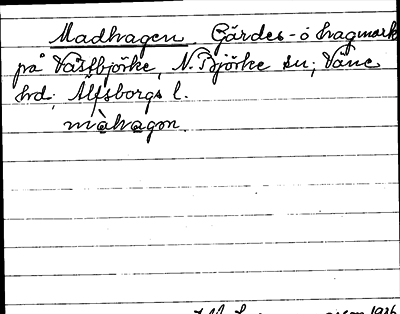 Madhagen Gärdes- o hagmark
på Västbjörke, N. Björke sn; Väne
hd; Älfsborgs l.
màhagon.
1936